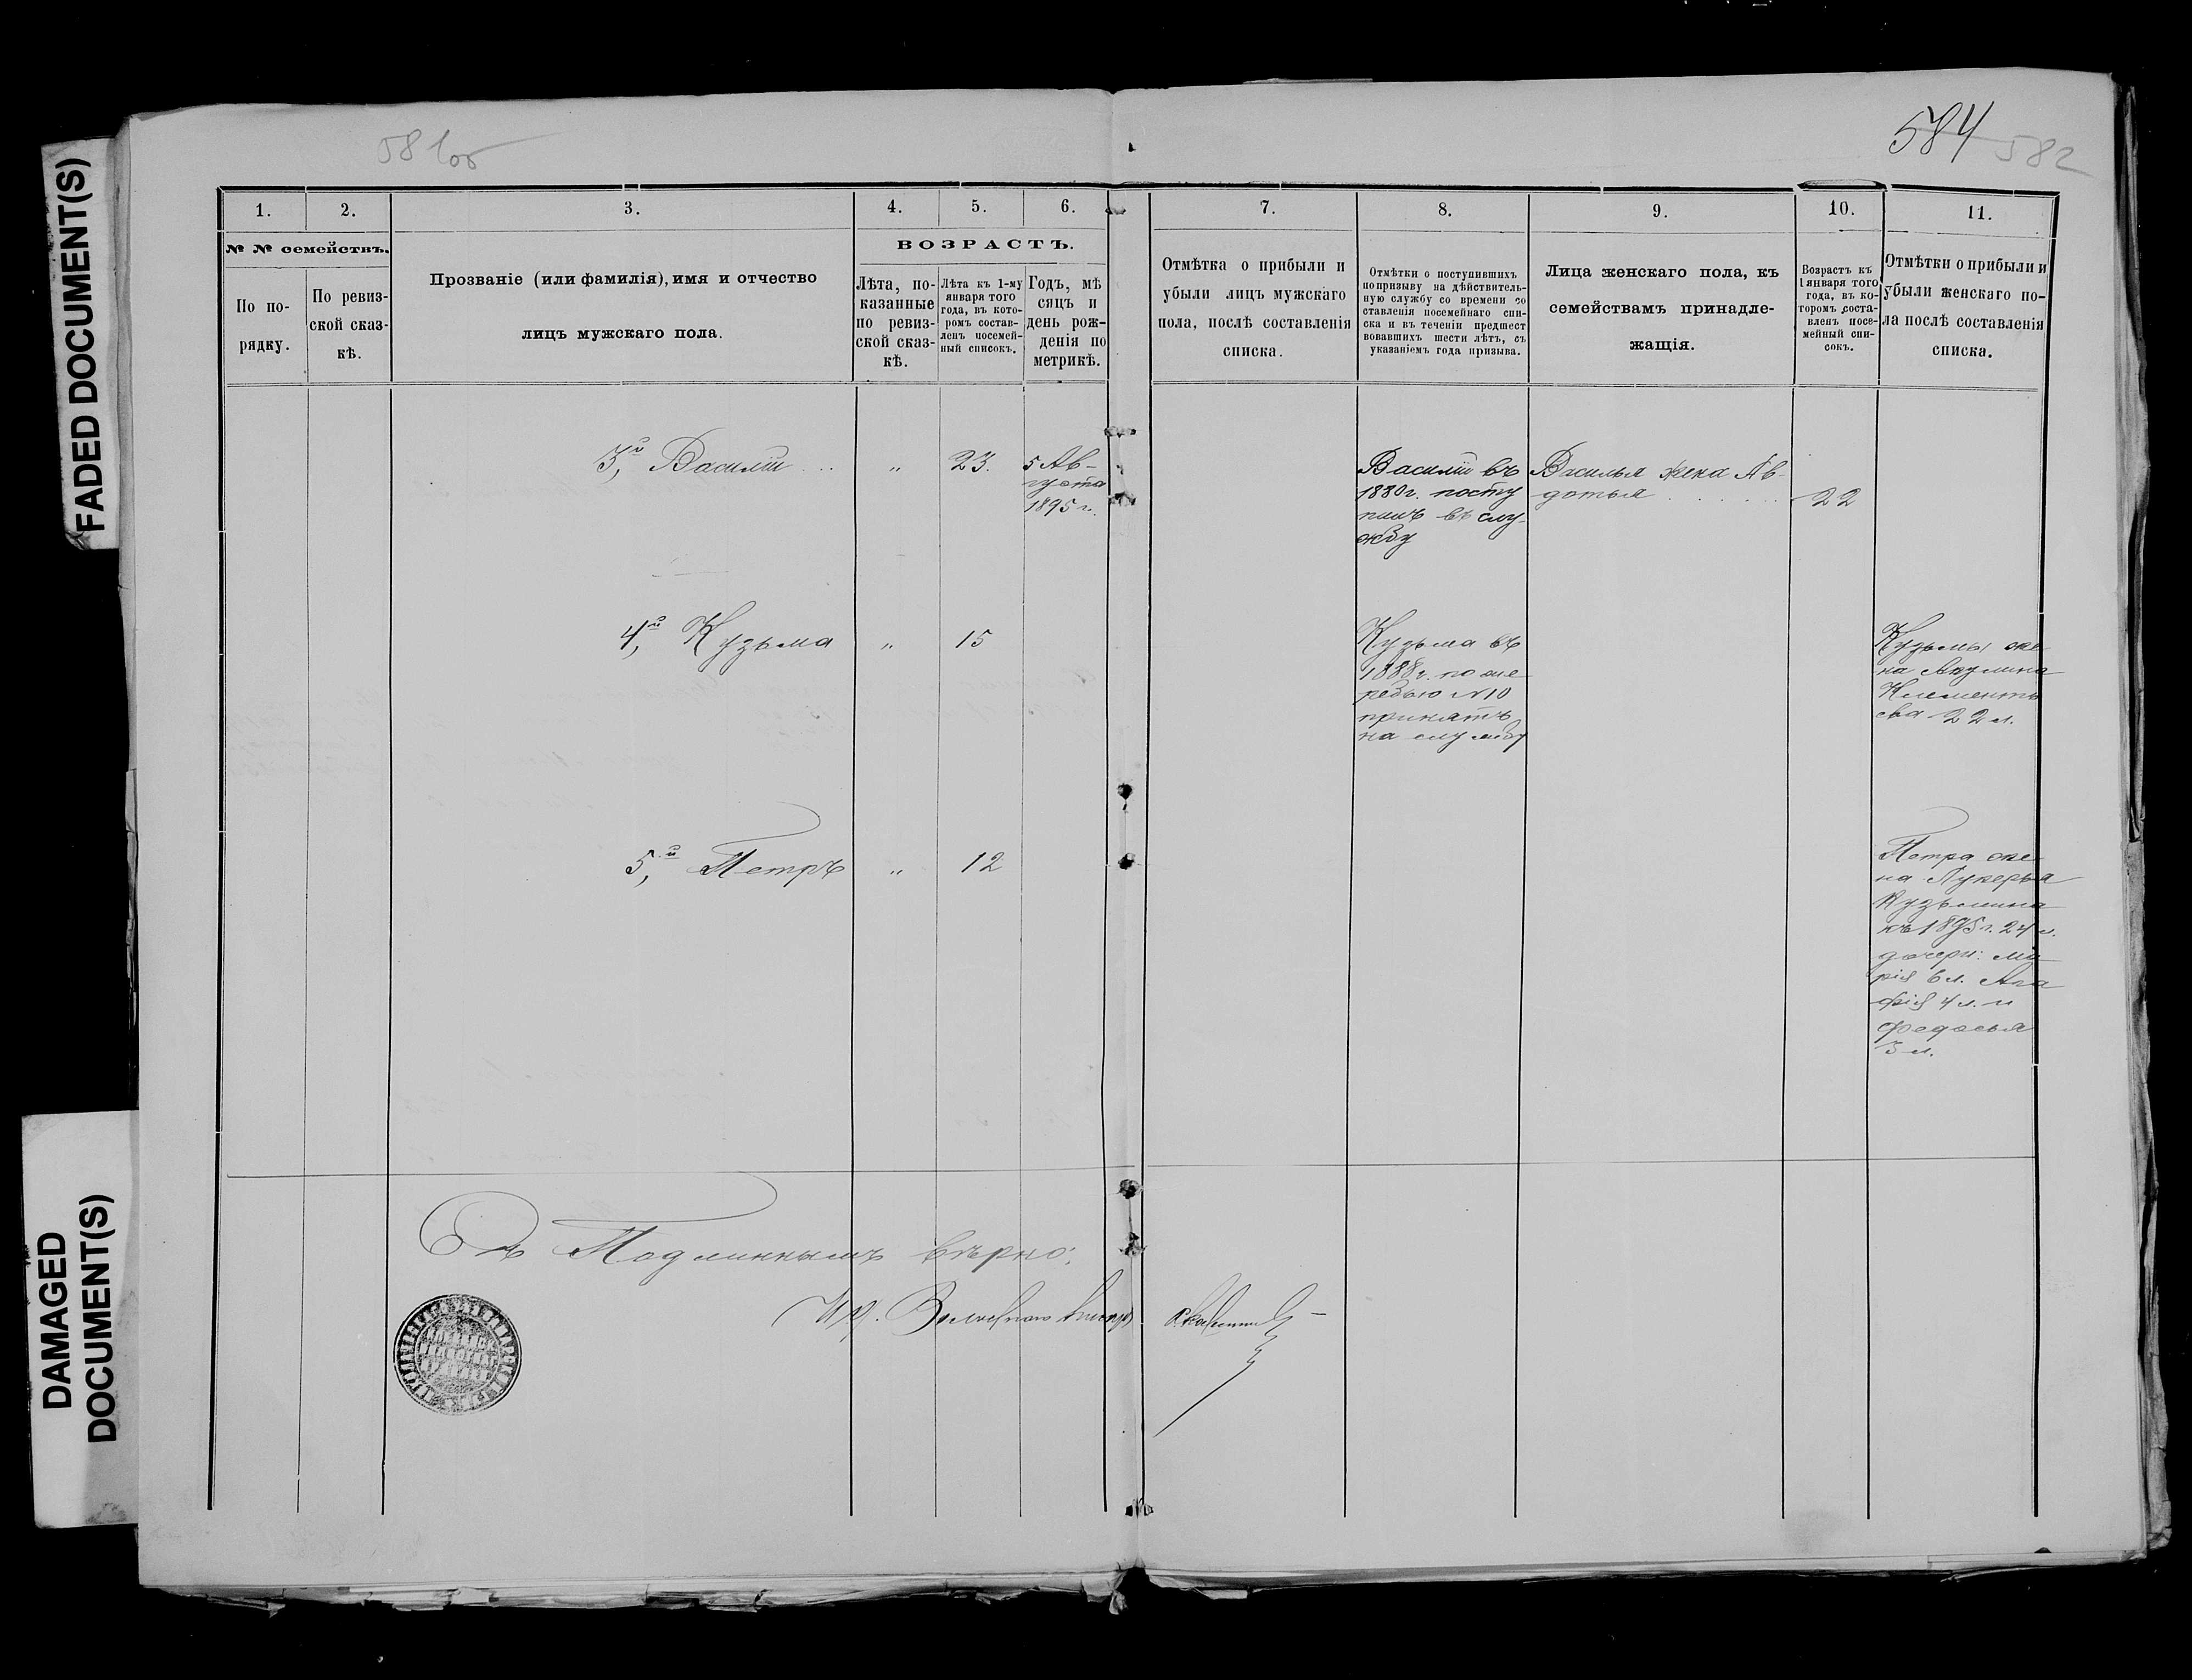 FADED DOCUMENT(S)
DAMAGED
DOCUMENT(S)
581об
584 582
1.
2.
3.
4.
5.
6.
7.
8.
9.
10.
11.
№ № семействъ.
По по-
рядку.
По ревиз-
ской сказ-
кѣ.
Прозваніе (или фамилія), имя и отчество
лицъ мужскаго пола.
ВОЗРАСТЪ.
Лѣта, по-
казанные
по ревиз-
ской сказ-
кѣ.
Лѣта къ 1-му
января того
года, въ кото-
ромъ состав-
ленъ посемей-
ный списокъ.
Годъ, мѣ
сяцъ и
день рож-
денія по
метрикѣ.
Отмѣтка о прибыли и
убыли лицъ мужскаго
пола, послѣ составленія
списка.
Отмѣтки о поступившихъ
попризыву на дѣйствитель-
ную службу со времени со
ставленія посемейнаго спи-
ска и въ теченіи предшест
вовавшихъ шести лѣтъ, съ
указаніемъ года призыва.
Лица женскаго пола, къ
семействамъ принадле-
жащія.
Возрастъ къ
1 января того
года, въ ко-
торомъ соста-
вленъ посе-
мейный спи-
сокъ.
Отмѣтки о прибыли и
убыли женскаго по-
ла послѣ составленія
списка.
3,й Василій ...
"
23.
5 Ав-
густа
1895 г.
Василій въ
1880 г. посту
пилъ въ слу-
жбу
Василья жена Ав-
дотья . . . . .
22
4,й Кузьма
"
15
Кузьма въ
1888 г. по же
ребью №10
принятъ
на службу
Кузьмы же
на Акулина
Клементь
ева 22 л.
5,й Петръ
"
12
Петра же-
на Лукерья
Кузьмина
къ 1895 г. 24 л.
дочери: Ма-
рія 6 л. Ага
фія 4 л. и
Федосья
3 л.
Съ Подлиннымъ вѣрно:
Волостной Писарь